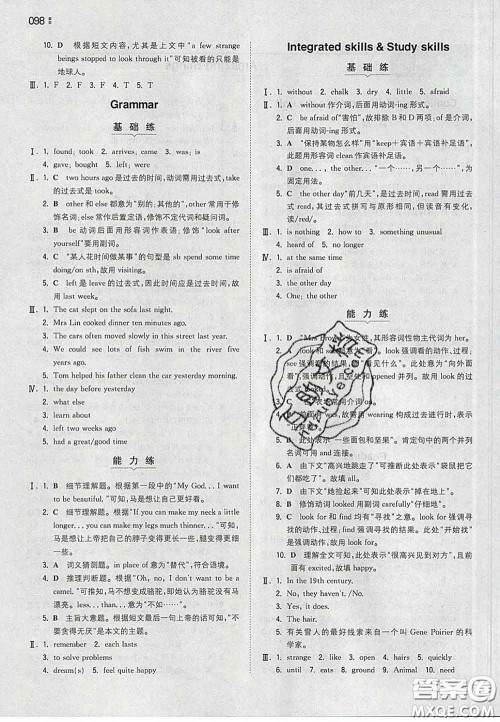 098
10. D 根据短文内容,尤其是上文中“a few strange
beings stopped to look through it”可知被看的只能是
地球人。
Ⅲ. 1. F 2. F 3. F 4. T 5. T
Grammar
基 础 练
Ⅰ. 1. found; took 2. arrives; came 3. was; is
4. gave; bought 5. left; were
Ⅱ. 1. C two hours ago是过去的时间,动词需用过去式,take
的过去式是took。
2. B other和else都意为“别的;其他的”,other常用于修
饰名词;else常作后置定语,修饰不定代词和疑问词。
3. B be动词后面用形容词作表语;修饰“look after
yourself”要用副词。
4. C “某人花时间做某事”的句型是sb spend some time
doing/on sth,故用visiting。
5. C left是leave的过去式,因此时间应是过去时间,故
用last week。
Ⅲ. 1. The cat slept on the sofa last night.
2. Mrs Lin cooked dinner ten minutes ago.
3. The cars often moved slowly in this street last year.
4. We could see lots of fish swim in the river five
years ago.
5. Tom helped his father clean the car yesterday evening.
Ⅳ. 1. the day before yesterday
2. what else
3. learn about
4. left two weeks ago
5. had a great/good time
能 力 练
Ⅰ. 1. B 细节理解题。根据第一段中的“My God... I want
to be beautiful. ”可知,马是想让自己变得更漂亮。
2. C 细节理解题。根据“If you can make my neck a little
longer... you can make my legs much thinner... ”可知,
马是想让上帝把自己的脖子变得更长一些,腿变得更细
一些。
3. A 词义猜测题。该词意为“替代”,符合语境。
4. D 推理判断题。根据“Oh, no, I don't want to be a
camel. ”可推知,马不想变成骆驼,即马认为骆驼没有马
漂亮。less... than... 意为“不如……”。
5. B 主旨大意题。根据短文最后一句上帝的话可知,“不
要贪得无厌”是本文的主题。
Ⅱ. 1. remember 2. each lasts
3. to solve problems
4. dream(s) 5. feel quite happy
Integrated skills & Study skills
基 础 练
Ⅰ. 1. without 2. chalk 3. dry 4. little 5. afraid
Ⅱ. 1. A without作介词,后面用动词-ing形式。
2. C be afraid of“害怕”,故排除B和D两项;of是介词,
后面用动词-ing形式。
3. A “保持某物怎么样”用“keep+宾语+宾语补足语”,
此句用形容词clean作宾语补足语。
4. D one... the other... “一个……,另一个……”,为
固定用法。
5. C the other day“前几天”,是过去时间,read需用过去
式read,其过去式拼写与原形相同,但读音有变化,
读/red/。
Ⅲ. 1. is nothing 2. how to 3. something unusual
4. heard of 5. no longer
Ⅳ. 1. at the same time
2. is afraid of
3. the other day
4. One; the other
能 力 练
为女性,其形容词性物主代词为her。
look强调看的动作,过程;
并列。故用look的过
常用介词
故用wearing构成过去进行时,表示
5. B 此处表示“一些面包和坚果”。肯定句中的两个并列
名词可用and连接。
6. A 由下文“高兴地跳走了”可推断此处表示“袋鼠把它
们都吃了”。故填all。
7. D 由下文“她捡起来”可知此处表示“掉在地上”。
8. B 修饰动词looked用副词carefully“仔细地”。
9. C look for和find均有“寻找”之意。look for强调寻
找的动作,历程;find强调寻找的结果。此处“开始找”
是强调动作,故用look for。
10. D 理解全文可知,此处表示“很高兴见到对方”,且前
面有be,故填happy。
Ⅱ. 1. In the 19th century.
2. No, they haven't. /No.
3. Yes, it does.
4. The hair.
5. 有关雪人的最好线索来自一个叫Gene Poirier的科
学家。
Ⅲ. 1. strange 2. like 3. open 4. hairs 5. quickly
6. until 7. eats 8. ground 9. Animal 10. need
答案圈
MXQE.COM